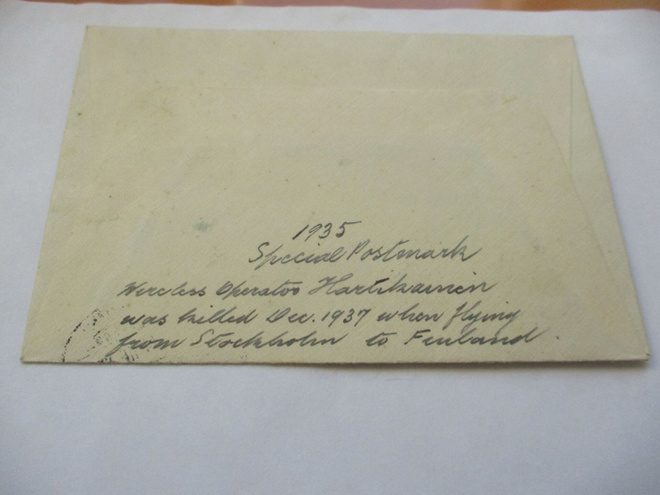 1935
Special Postmark
Wireless Operator Hartikainen
was killed Dec. 1937 when flying
from Stockholm to Finland.